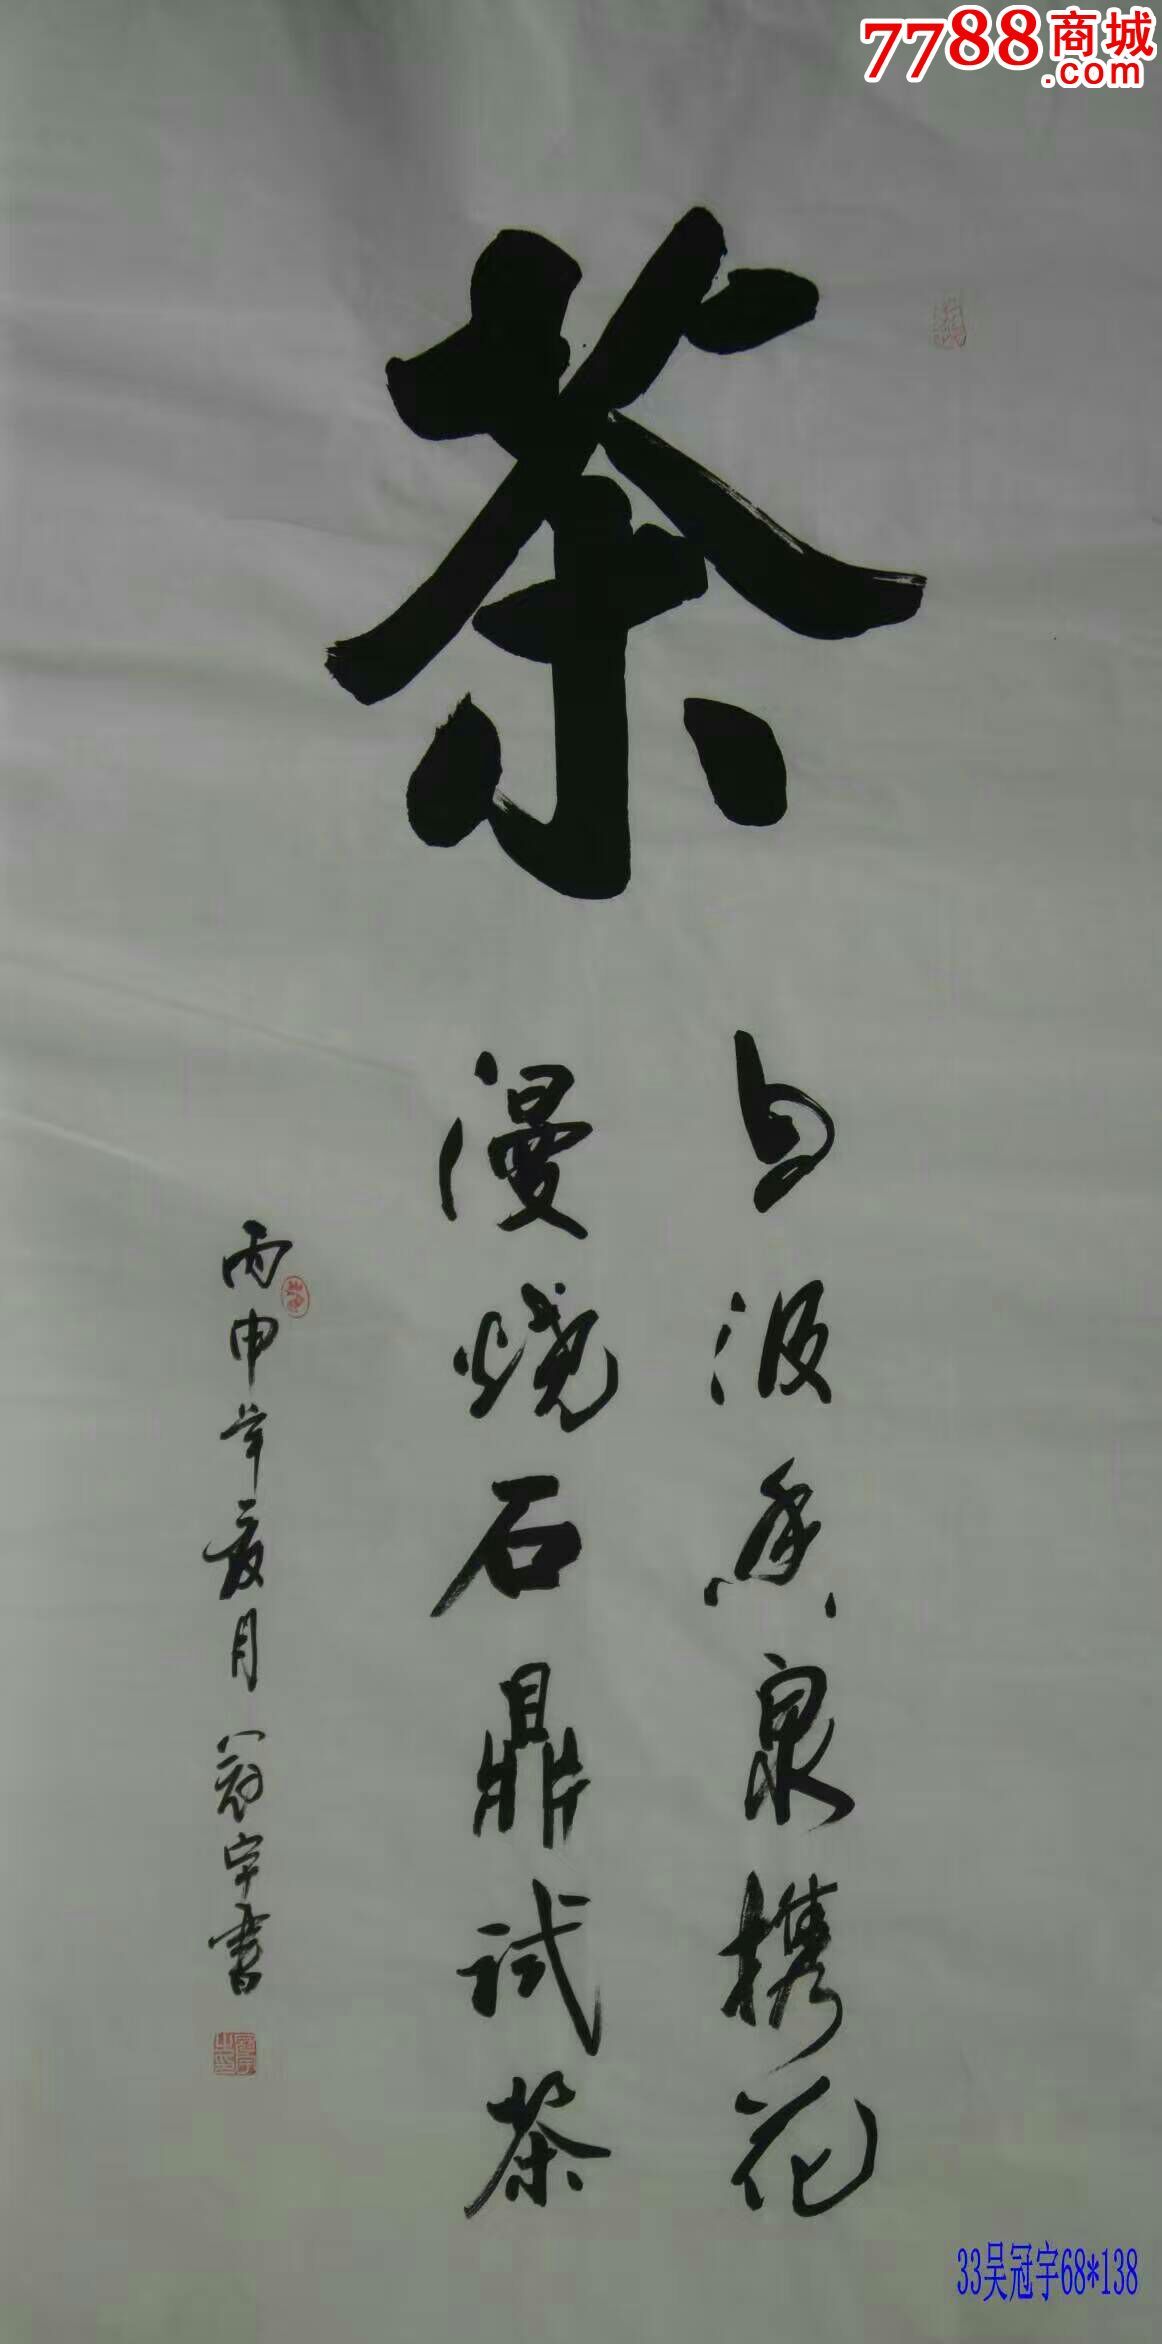 7788商城
.com
茶
自汲香泉携花
漫烧石鼎试茶
丙申年夏月冠宇书
33吴冠宇68*138